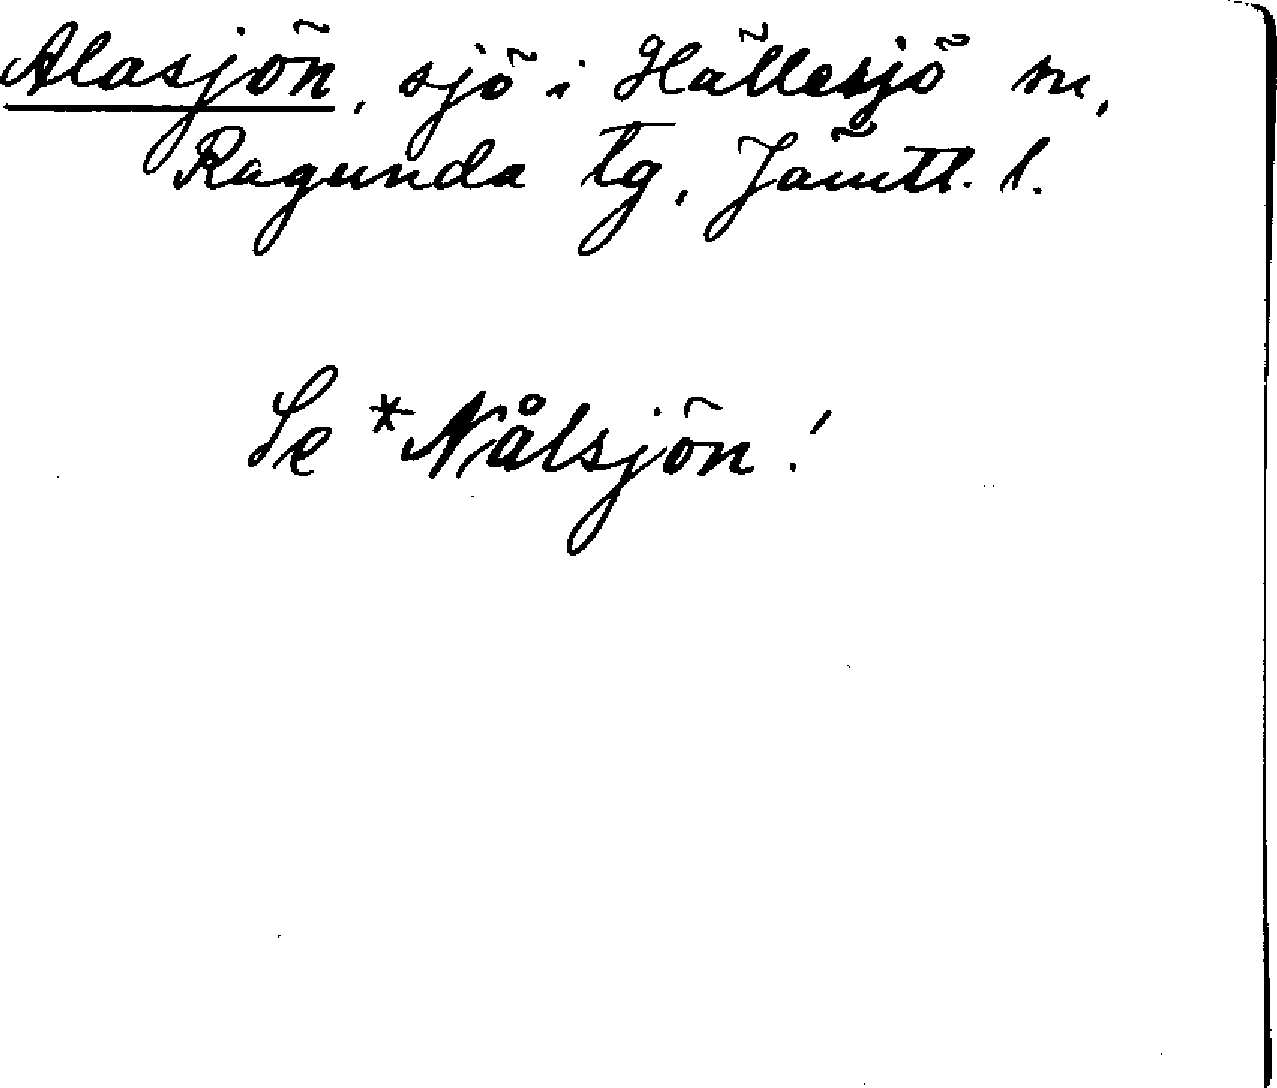 Alasjön, sjö i Hällesjö sn,
Ragunda tg, Jämtl. l.
Se *Nålsjön!